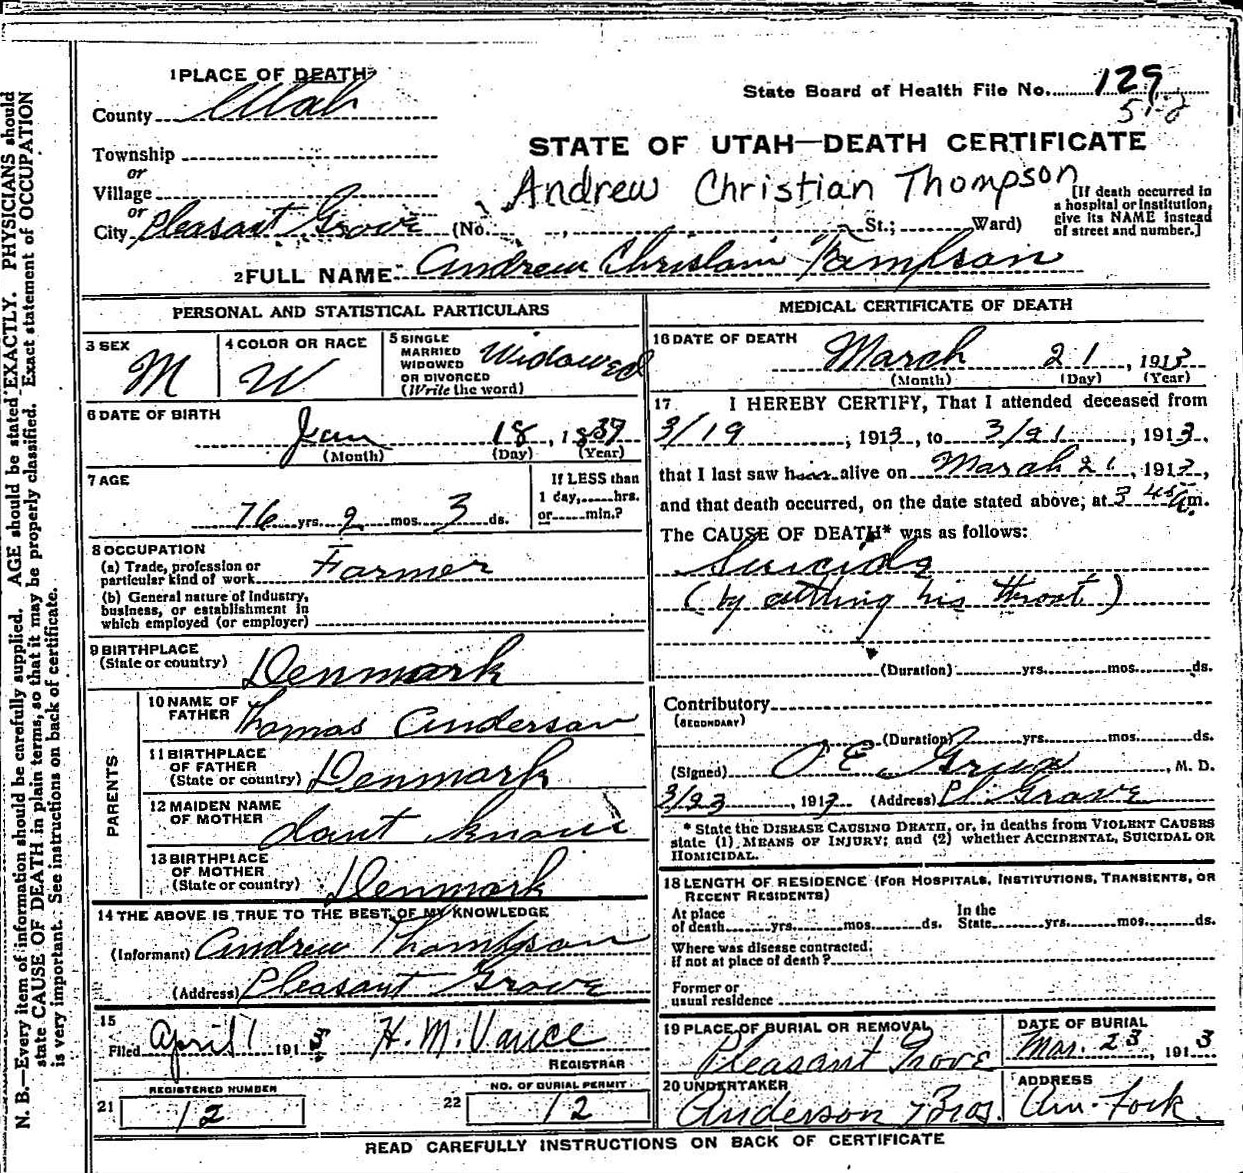 1 PLACE OF DEATH
County Utah
Township
or
Village
or
City Pleasant Grove (No. , St.; Ward)
State Board of Health File No. 129
STATE OF UTAH—DEATH CERTIFICATE
Andrew Christian Thompson
[If death occurred in a hospital or institution, give its NAME instead of street and number.]
2 FULL NAME Andrew Christain Tompson
PERSONAL AND STATISTICAL PARTICULARS
3 SEX M
4 COLOR OR RACE W
5 SINGLE MARRIED WIDOWED OR DIVORCED (Write the word) Widowed
6 DATE OF BIRTH
Jan 18, 1837
(Month) (Day) (Year)
7 AGE
76 yrs. 2 mos. 3 ds.
If LESS than
1 day, hrs.
or min.?
8 OCCUPATION
(a) Trade, profession or
particular kind of work Farmer
(b) General nature of Industry,
business, or establishment in
which employed (or employer)
9 BIRTHPLACE
(State or country) Denmark
PARENTS
10 NAME OF
FATHER Thomas Anderson
11 BIRTHPLACE
OF FATHER
(State or country) Denmark
12 MAIDEN NAME
OF MOTHER dont know
13 BIRTHPLACE
OF MOTHER
(State or country) Denmark
14 THE ABOVE IS TRUE TO THE BEST OF MY KNOWLEDGE
(Informant) Andrew Thompson
(Address) Pleasant Grove
15
Filed April 1 191 H. M. Vance
REGISTRAR
21 REGISTERED NUMBER 12
22 NO. OF BURIAL PERMIT 12
MEDICAL CERTIFICATE OF DEATH
16 DATE OF DEATH
March 21, 1913
(Month) (Day) (Year)
17 I HEREBY CERTIFY, That I attended deceased from
3/19, 1913, to 3/21, 1913,
that I last saw him alive on March 21, 1913,
and that death occurred, on the date stated above, at 3 45 a.m.
The CAUSE OF DEATH* was as follows:
Suicide
(by cutting his throat)
(Duration) yrs. mos. ds.
Contributory
(SECONDARY)
(Duration) yrs. mos. ds.
(Signed) O E Grua, M. D.
3/23, 1913 (Address) Pl. Grove
* State the DISEASE CAUSING DEATH, or, in deaths from VIOLENT CAUSES
state (1) MEANS OF INJURY; and (2) whether ACCIDENTAL, SUICIDAL OR
HOMICIDAL.
18 LENGTH OF RESIDENCE (FOR HOSPITALS, INSTITUTIONS, TRANSIENTS, OR
RECENT RESIDENTS)
At place
of death yrs. mos. ds.
In the
State yrs. mos. ds.
Where was disease contracted,
if not at place of death?
Former or
usual residence
19 PLACE OF BURIAL OR REMOVAL
Pleasant Grove
DATE OF BURIAL
Mar. 23, 1913
20 UNDERTAKER
Anderson & Bros.
ADDRESS
Am. Fork.
READ CAREFULLY INSTRUCTIONS ON BACK OF CERTIFICATE
N. B.—Every item of information should be carefully supplied. AGE should be stated EXACTLY. PHYSICIANS should
state CAUSE OF DEATH in plain terms, so that it may be properly classified. Exact statement of OCCUPATION
is very important. See instructions on back of certificate.